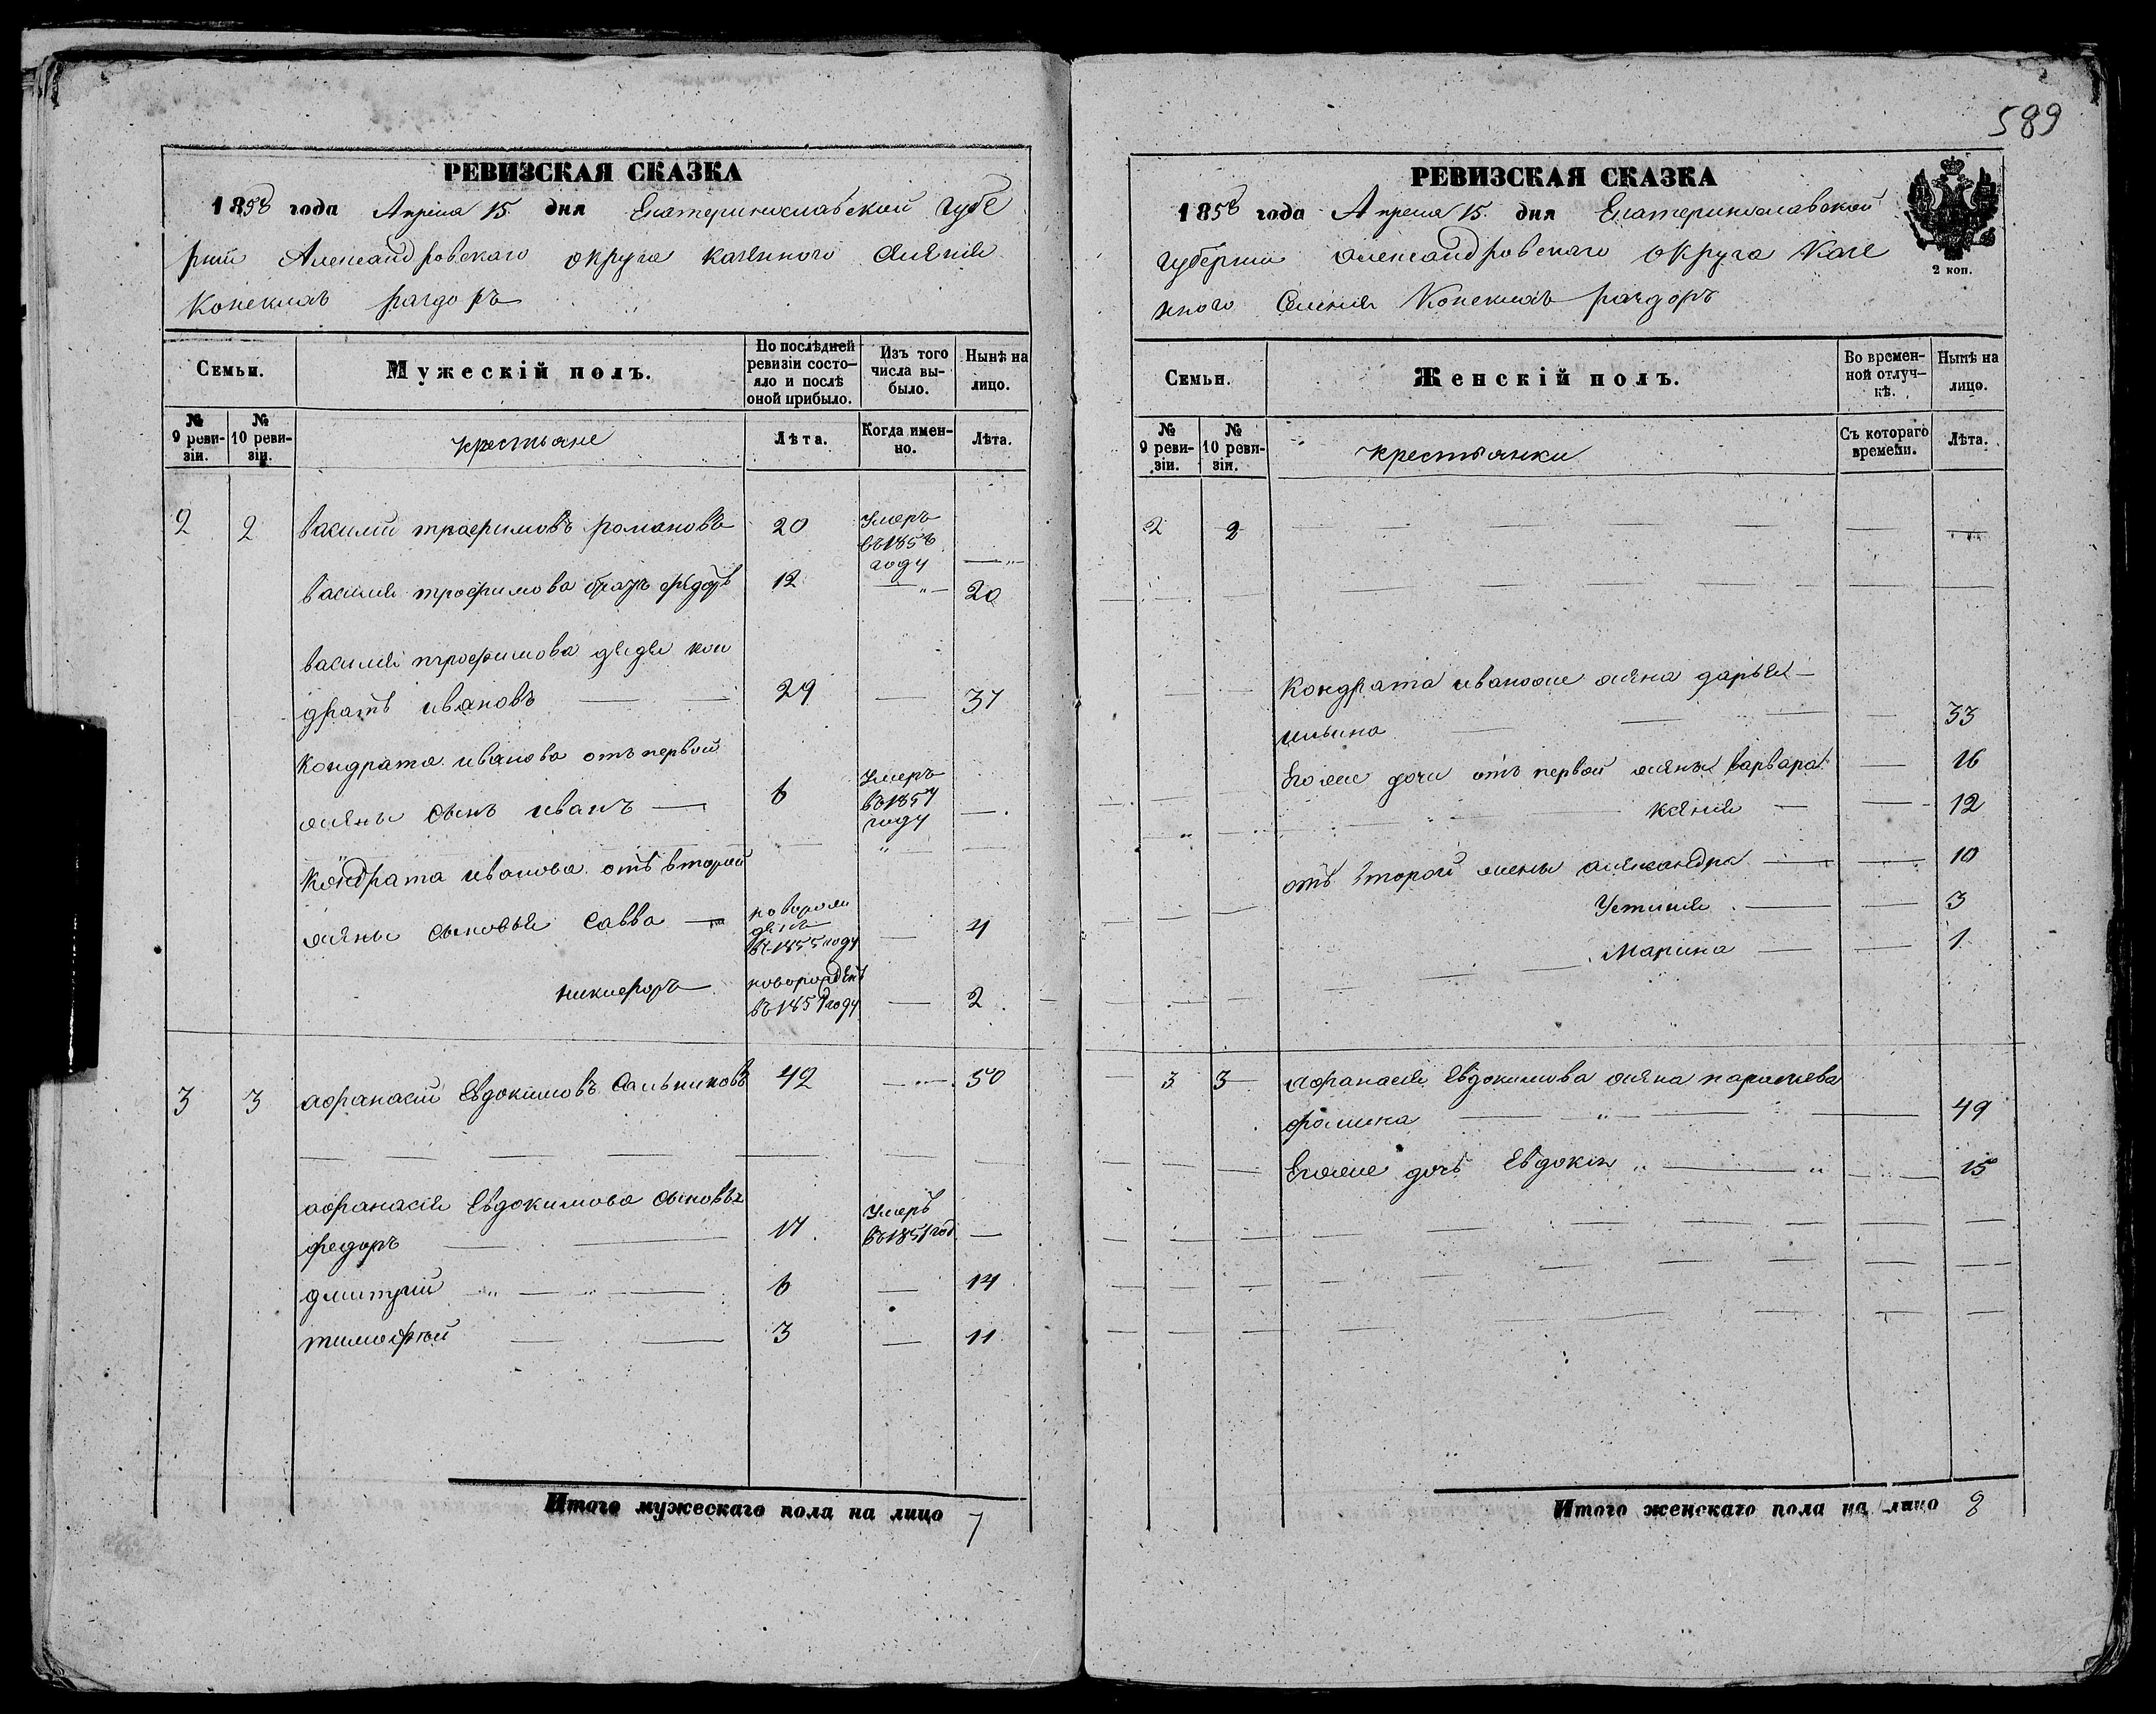 589
РЕВИЗСКАЯ СКАЗКА
1858 года Апреля 15 дня Екатеринославской губе
рнии Александровскаго округа казенного селения
Конскихъ раздоръ
Семьи.
Мужескій полъ.
По послѣдней ревизіи состо-
яло и послѣ
оной прибыло.
Изъ того
числа вы-
было.
Нынѣ на
лицо.
№
9 реви-
зіи.
№
10 реви-
зіи.
крестьяне
Лѣта.
Когда имен-
но.
Лѣта.
2 2 василий трофимовъ романовъ 20 Умеръ
въ 1858
году
василия трофимова братъ федоръ 12 20
василия трофимова дядя кон
дратъ ивановъ 29 37
Кондрата иванова отъ первой
жены сынъ иванъ 6 Умеръ
въ 1857
году
Кондрата иванова отъ второй
жены сыновья Савва новорож
денъ
въ 1855 году 4
никифоръ новорожденъ
въ 1857 году 2
3 3 афанасий Евдокимовъ Сальниковъ 42 50
афанасия Евдокимова сыновья
федоръ 17 Умеръ
въ 1851 год
дмитрий 6 14
тимофей 3 11
Итого мужескаго пола на лицо 7
РЕВИЗСКАЯ СКАЗКА
1858 года Апреля 15 дня Екатеринославской
губернии александровскаго округа казе
нного Селения Конскихъ раздоръ
2 коп.
Семьи.
Женскій полъ.
Во времен-
ной отлуч-
кѣ.
Нынѣ на
лицо.
№
9 реви-
зіи.
№
10 реви-
зіи.
крестьянки
Съ котораго
времени.
Лѣта.
2 2
Кондрата иванова жена дарья
ильина 33
Его же дочи отъ первой жены варвара 16
ксения 12
отъ второй жены александра 10
Устиния 3
Марина 1
3 3 афанасия Евдокимова жена парасковева
фомина 49
Егоже дочь Евдокия 15
Итого женскаго пола на лицо 8